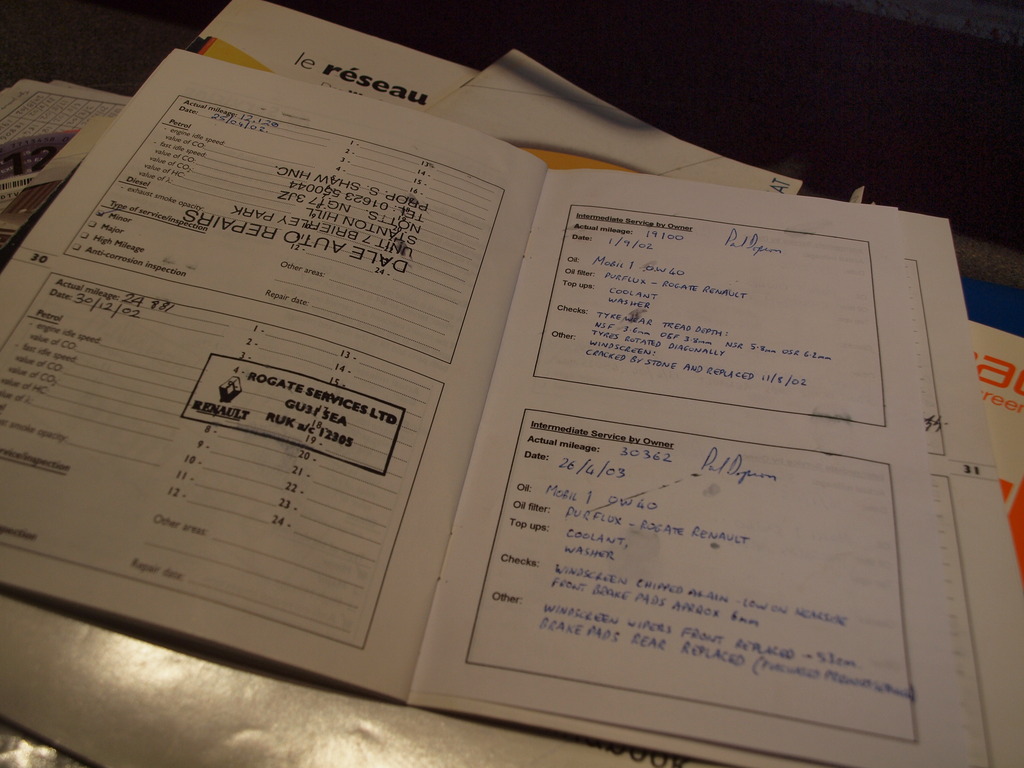 le réseau
Actual mileage: 12,120
Date: 25/04/02.
Petrol
- engine idle speed:
value of CO:
- fast idle speed:
value of CO:
value of CO2:
value of HC:
value of λ:
Diesel
- exhaust smoke opacity:
Type of service/inspection
Minor
Major
High Mileage
Anti-corrosion inspection
1 -
2 -
3 -
4 -
13 -
14 -
15 -
16 -
24 -
Other areas:
Repair date:
DALE AUTO REPAIRS
UNIT 7 BRIERLEY PARK
STANTON HILL
NOTTS. NG17 3JZ
TEL: 01623 550044
PROP. S. SHAW HNC
30
Actual mileage: 24 881
Date: 30/12/02
Petrol
- engine idle speed:
value of CO:
- fast idle speed:
value of CO:
value of CO2:
value of HC:
value of λ:
smoke opacity:
service/inspection
1 -
2 -
3 -
4 -
8 -
9 -
10 -
11 -
12 -
13 -
14 -
15 -
18 -
19 -
20 -
21 -
22 -
23 -
24 -
Other areas:
Repair date:
ROGATE SERVICES LTD
GU31 5EA
RUK a/c 12305
RENAULT
Intermediate Service by Owner
Actual mileage: 19100
Date: 1/9/02
Oil: MOBIL 1 0W40
Oil filter: PURFLUX - ROGATE RENAULT
Top ups: COOLANT
WASHER
Checks: TYRE WEAR TREAD DEPTH:
NSF 3.6mm OSF 3.8mm NSR 5.8mm OSR 6.2mm
TYRES ROTATED DIAGONALLY
Other: WINDSCREEN:
CRACKED BY STONE AND REPLACED 11/8/02
Intermediate Service by Owner
Actual mileage: 30362
Date: 26/4/03
Oil: MOBIL 1 0W40
Oil filter: PURFLUX - ROGATE RENAULT
Top ups: COOLANT,
WASHER
Checks: WINDSCREEN CHIPPED AGAIN - LOW ON NEARSIDE
FRONT BRAKE PADS APROX 6mm
Other: WINDSCREEN WIPERS FRONT REPLACED - 53cm
BRAKE PADS REAR REPLACED (PURCHASED
31